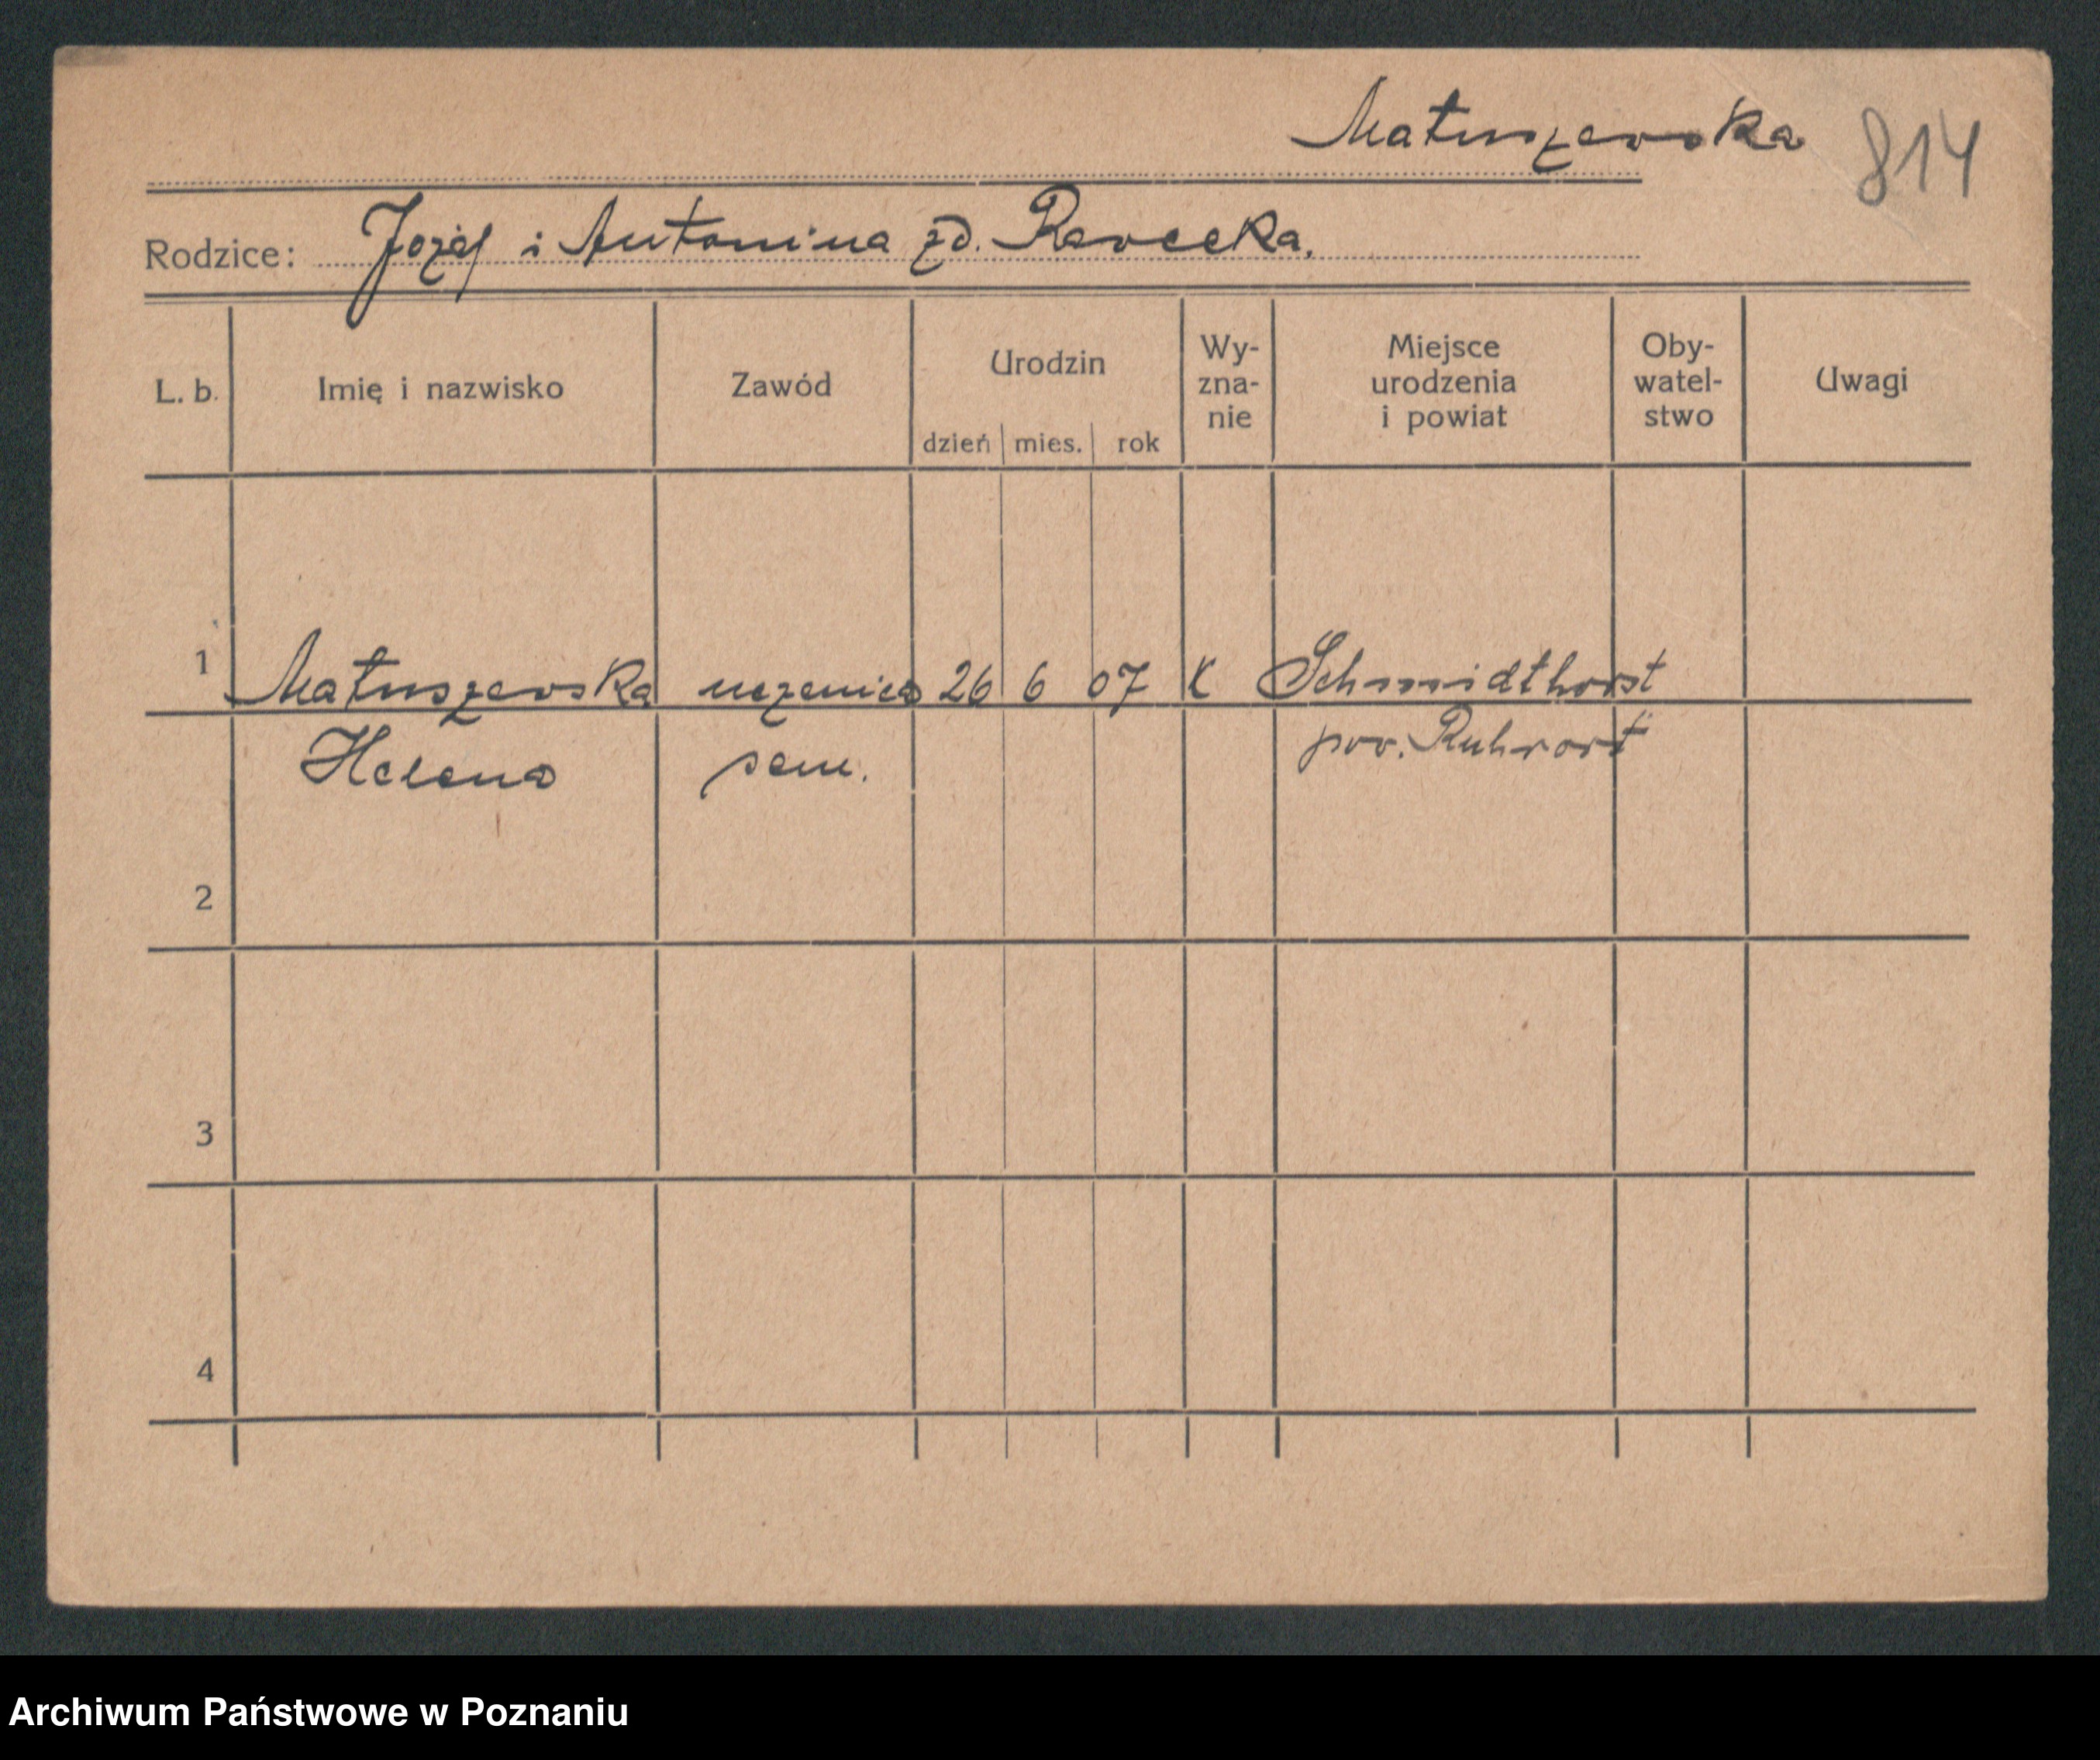 Matuszewska 814
Rodzice: Józef i Antonina zd. Rawecka.
L. b. Imię i nazwisko Zawód Urodzin dzień mies. rok Wy-zna-nie Miejsce urodzenia i powiat Oby-watel-stwo Uwagi
1 Matuszewska uczenica 26 6 07 K Schmidthorst
Helena sem. pow. Ruhrort
2
3
4
Archiwum Państwowe w Poznaniu